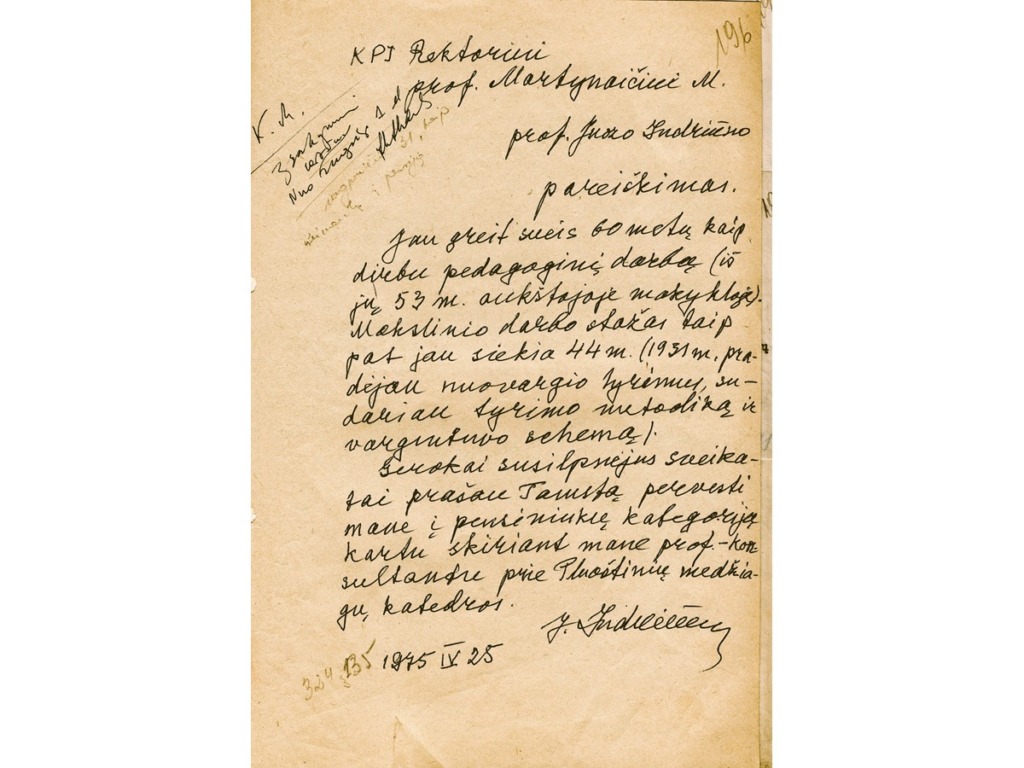 196
KPI Rektoriui
prof. Martynaičiui M.
K. M.
Įsakymui
Nuo 1 d
prof. Juozo Indriūno
pareiškimas.
Jau greit sueis 60 metų kaip
dirbu pedagoginį darbą (iš
jų 53 m. aukštojoje mokykloje).
Mokslinio darbo stažas taip
pat jau siekia 44 m. (1931 m. pra-
dėjau nuovargio tyrimus, su-
dariau tyrimo metodiką ir
vargintuvo schemą).
Gerokai susilpnėjus sveika-
tai prašau Tamstą pervesti
mane į pensininkų kategoriją
kartu skiriant mane prof.-kon-
sultantu prie Pluoštinių medžia-
gų katedros.
J. Indriūnas
1975 IV 25